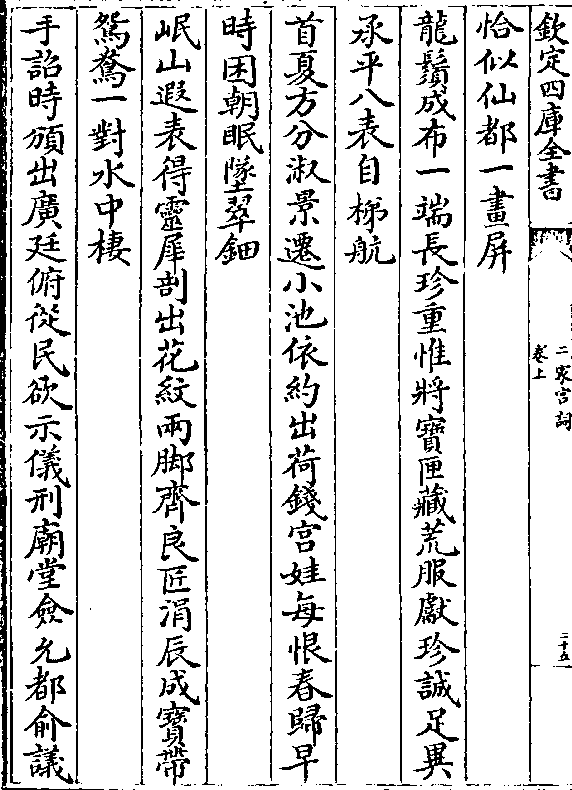 欽定四庫全書
二家宮詞
卷上
二十五
恰似仙都一畫屏
龍鬚成布一端長珍重惟將寶匣藏荒服獻珍誠足異
承平八表自梯航
首夏方分淑景遷小池依約出荷錢宮娃每恨春歸早
時困朝眠墜翠鈿
岷山遐表得靈犀剖出花紋兩脚齊良匠涓辰成寶帶
鴛鴦一對水中棲
手詔時頒出廣廷俯從民欲示儀刑廟堂僉允都俞議